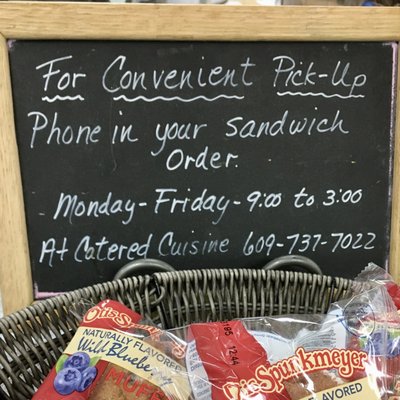 For Convenient Pick-Up
Phone in your sandwich
Order.
Monday-Friday-9:00 to 3:00
At Catered Cuisine 609-737-7022
Otis Spunkmeyer
NATURALLY FLAVORED
Wild Blueberry
MUFFIN
12:44
Otis Spunkmeyer
FLAVORED